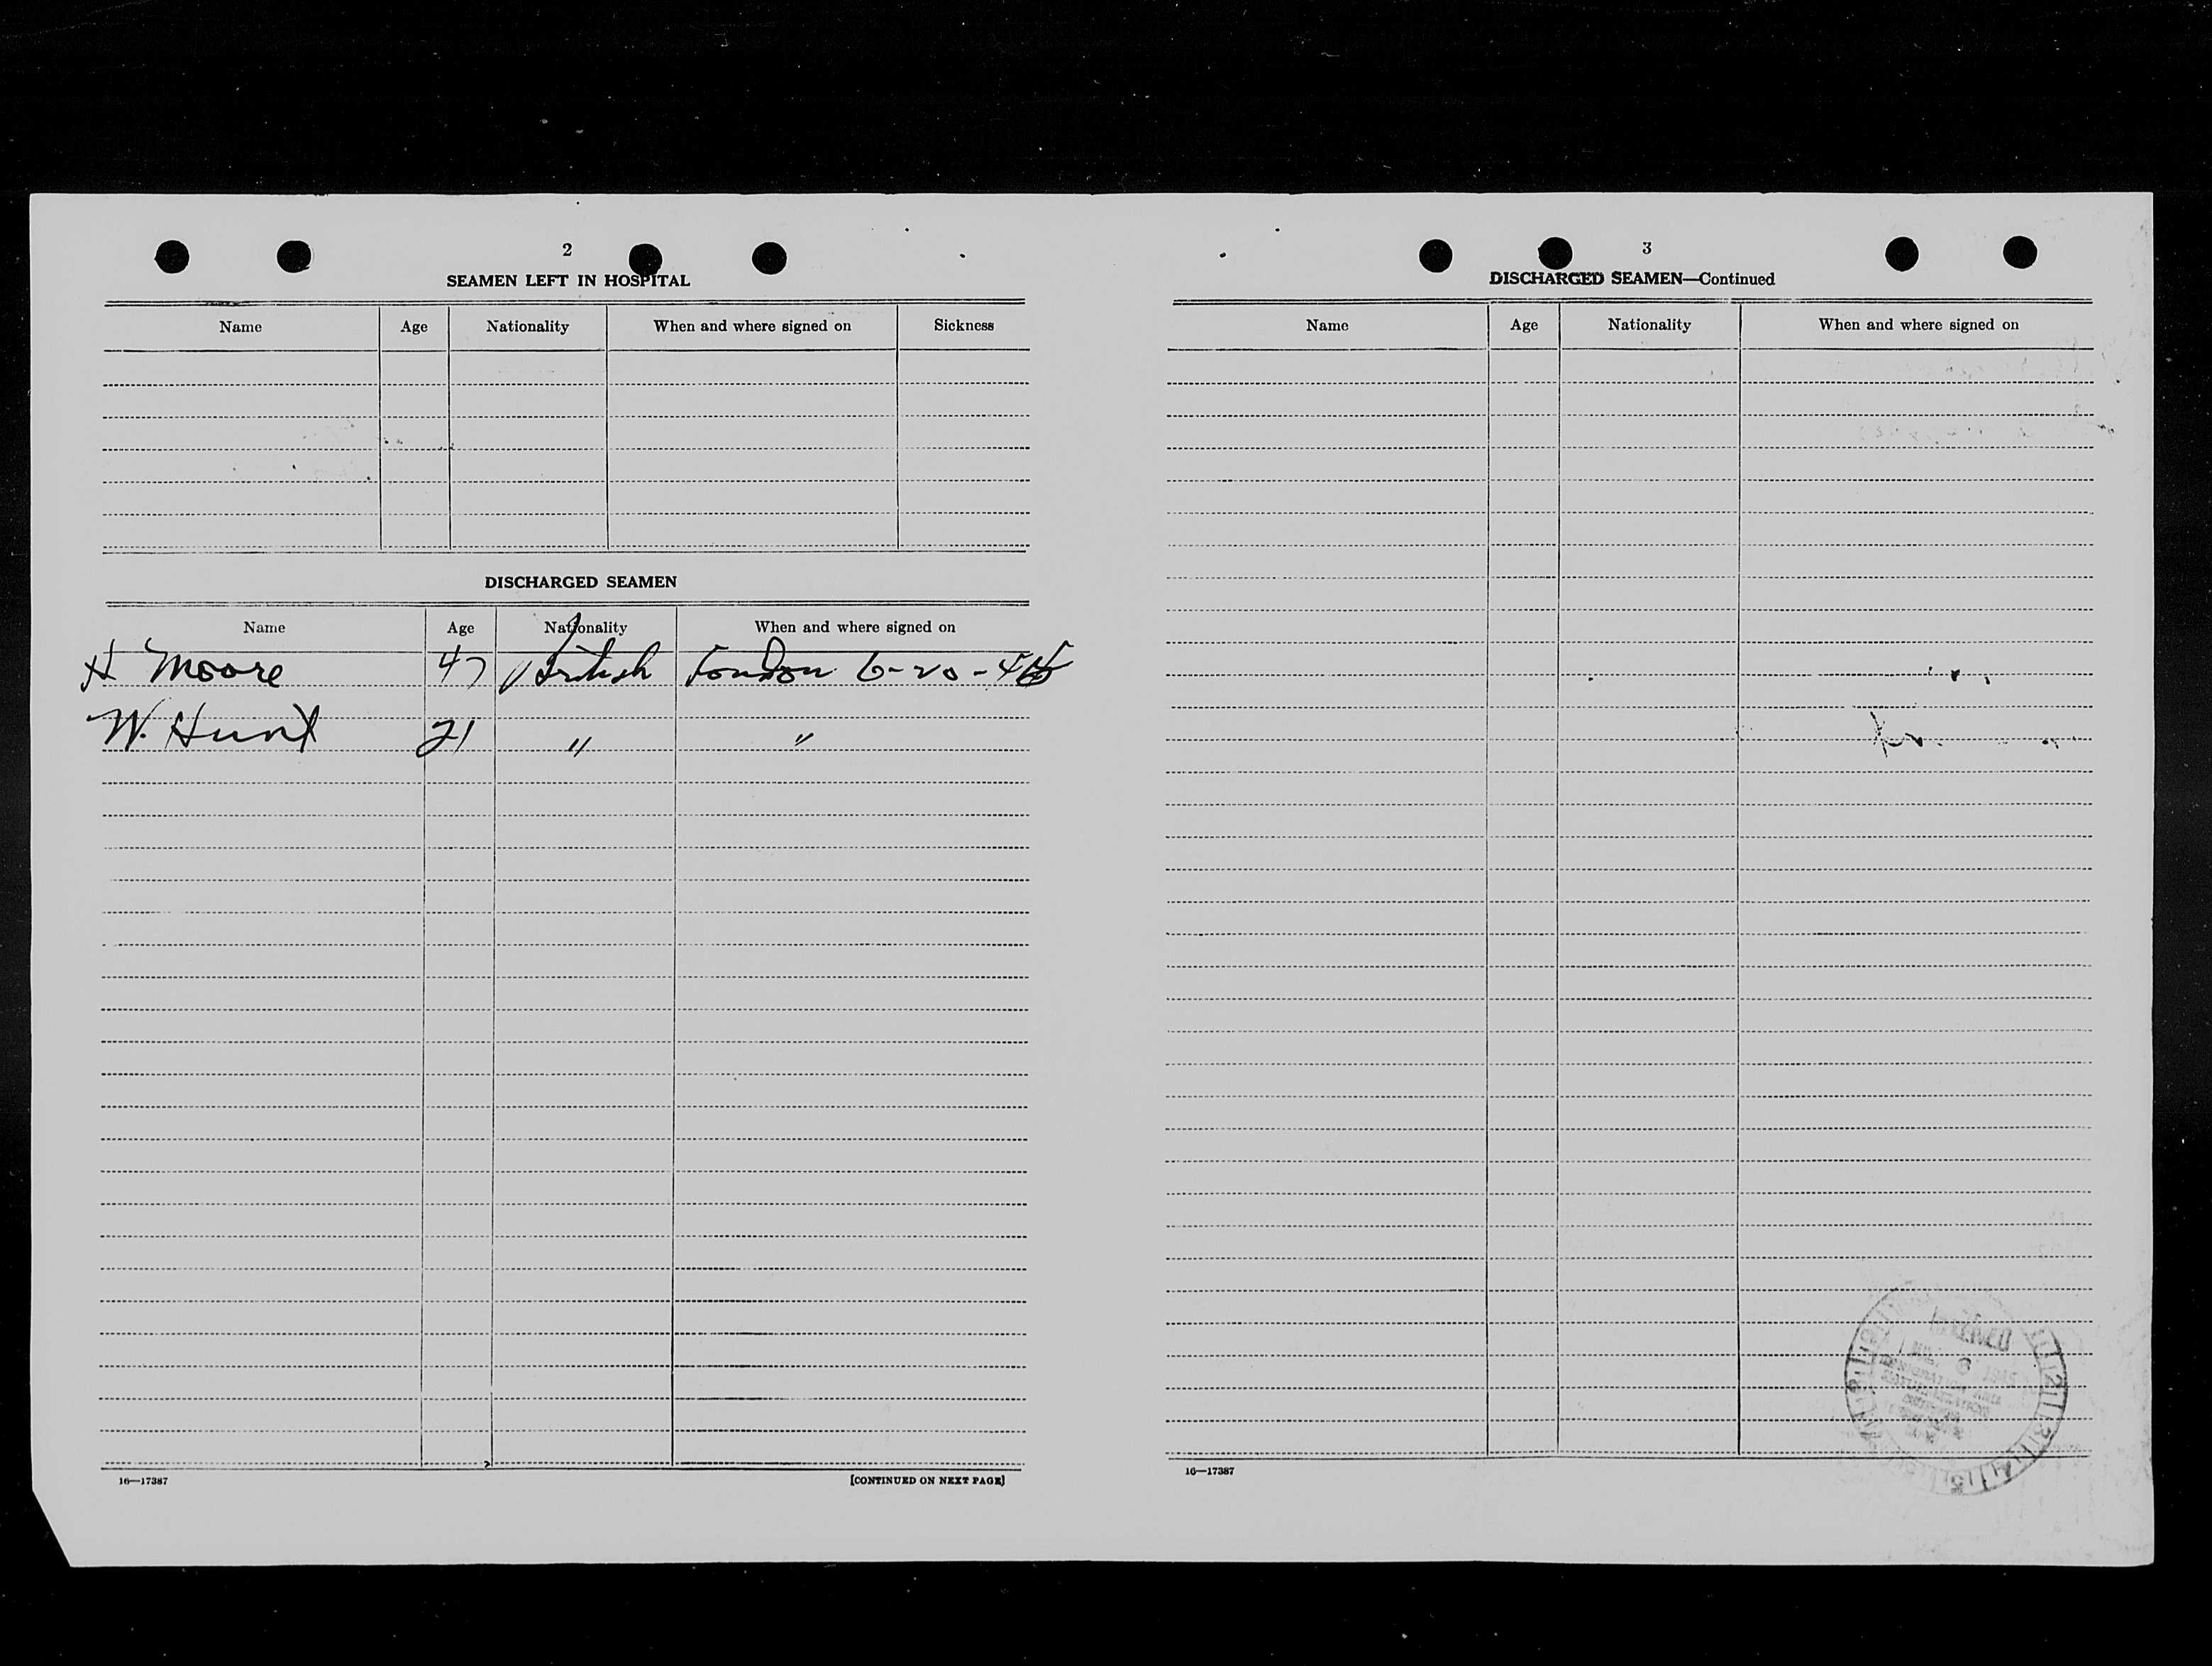 2
SEAMEN LEFT IN HOSPITAL
Name Age Nationality When and where signed on Sickness
DISCHARGED SEAMEN
Name Age Nationality When and where signed on
H Moore 47 British London 6-20-45
W. Hunt 21 " "
16—17387 [CONTINUED ON NEXT PAGE]
3
DISCHARGED SEAMEN—Continued
Name Age Nationality When and where signed on
16—17387